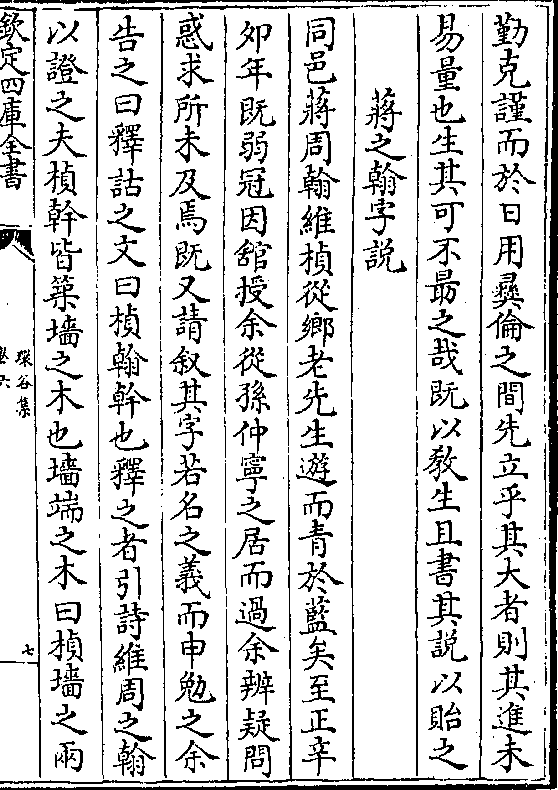 勤克謹而於日用彛倫之間先立乎其大者則其進未
易量也生其可不勗之哉既以敎生且書其說以貽之
蔣之翰字說
同邑蔣周翰維楨從鄉老先生遊而青於藍矣至正辛
夘年既弱冠因舘授余從孫仲寧之居而過余辨疑問
惑求所未及焉既又請叙其字若名之義而申勉之余
告之曰釋詁之文曰楨翰幹也釋之者引詩維周之翰
以證之夫楨幹皆築墻之木也墻端之木曰楨墻之兩
欽定四庫全書
環谷集
卷六
七